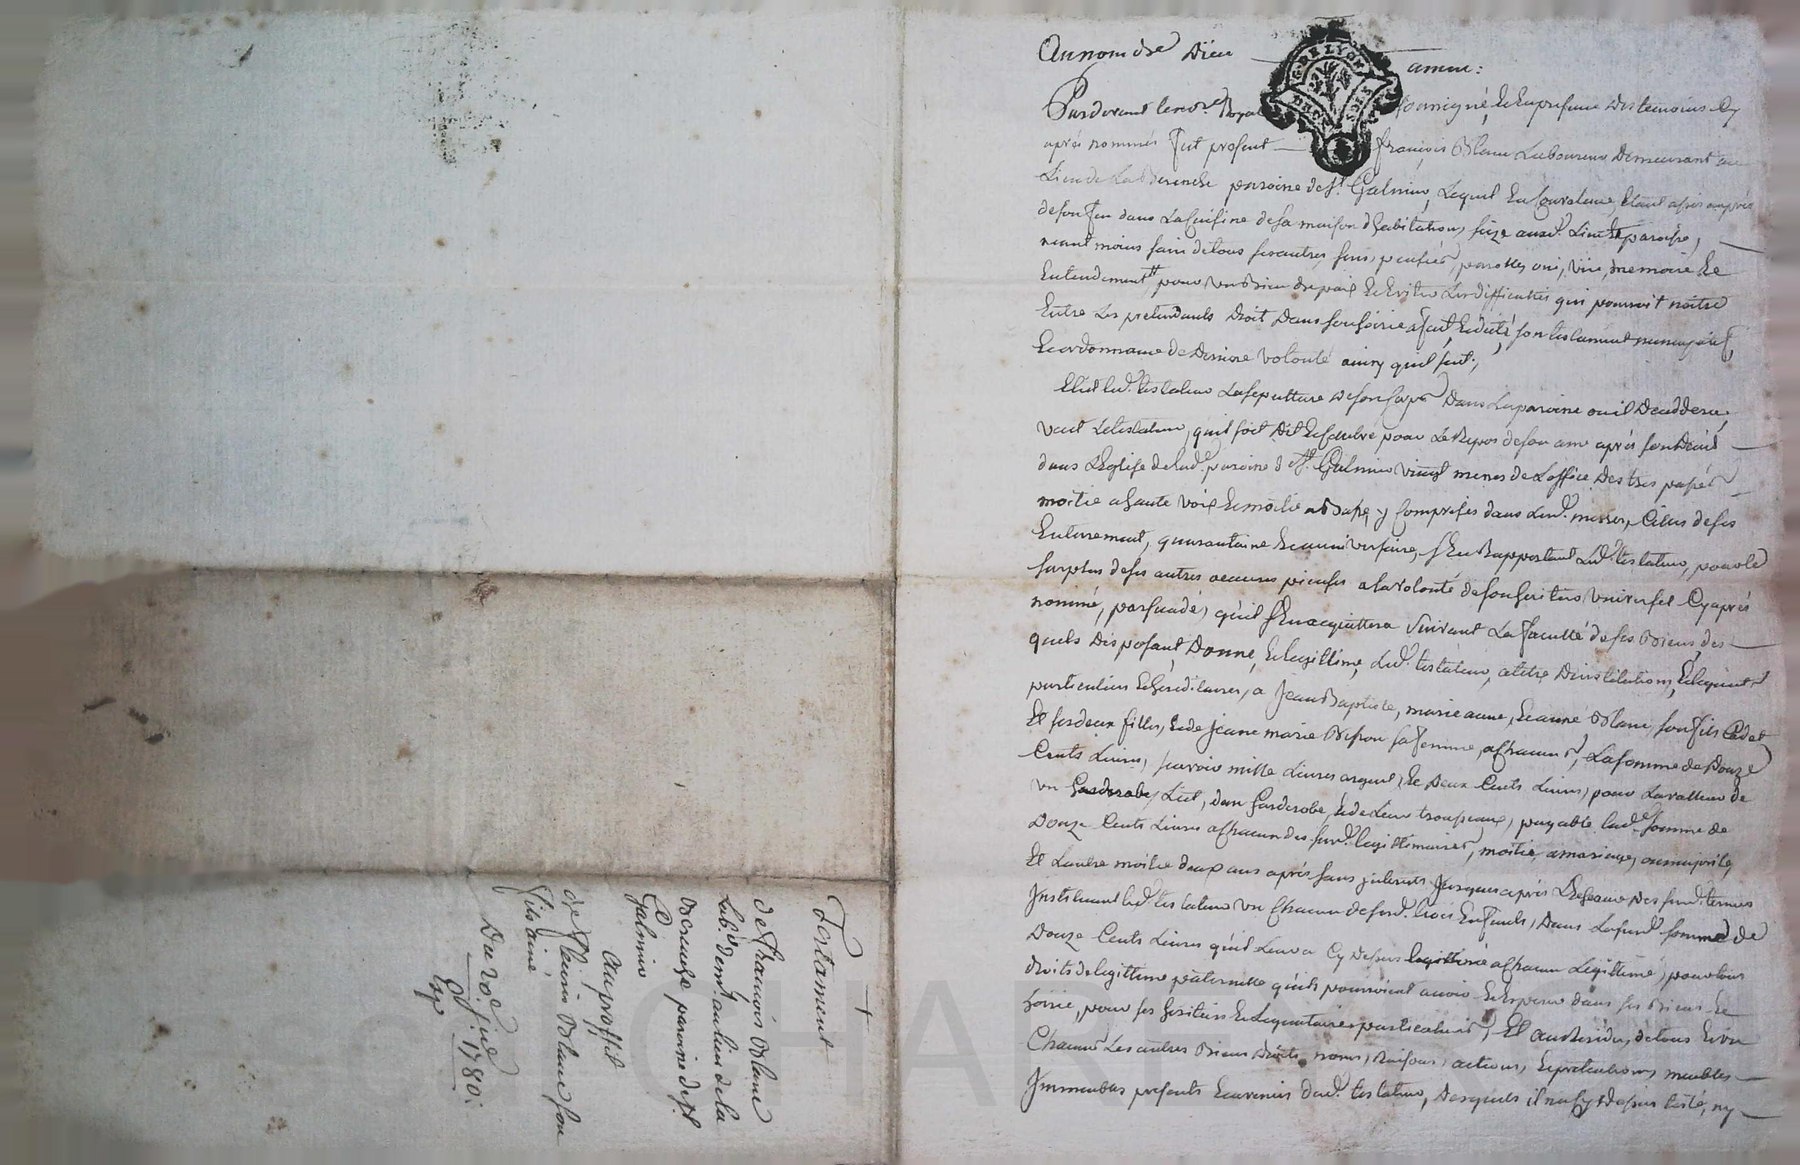 Au nom de Dieu amen:
G. DE LYON
Pardevant le not.re Royal soussigné, et en presence des temoins cy
après nommés fut present françois Blanc Laboureur Demeurant au
Lieu de La paroisse de s.t Galmier, Lequel étant assis auprès
de son feu dans La Cuisine de sa maison d'habitation, size aud.t Lieu et paroisse,
neant moins sain de tous ses autres sens, pensées, parolles, oui, vüe, memoire et
Entendement, pour un Bien de paix et Eviter Les difficultés qui pourroit naitre
Entre Les pretendants Droit Dans son hoirie a fait, et dicté, son testament nuncupatif,
Et ordonnance de Derniere volonté ainsy quil suit;
Elit led.t testateur La sepulture de son Corps Dans La paroisse ou il Deceddera,
veut Le testateur, quil soit Dit et Celebré pour Le Repos de son ame après son Deces
dans L'Eglise de lad.e paroisse de S.t Galmier vingt messes de L'office Des tres passés
moitie a haute voix et moitie a Basse, y Comprises dans Lesd. messes, Celles de ses
Enterrement, quarantaine et anniversaire, s'En Rapportant Led.t testateur, pour le
surplus de ses autres oeuvres pieuses a la volonté de son heritier universel Cy après
nommé, persuadé, qu'il s'En acquittera suivant La faculté de ses Biens, des
quels Disposant, Donne, et Legittime, Led.t testateur, a titre D'institution, et Legat
particuliers et hereditaires, a Jean Baptiste, marie anne, et anne Blanc, son fils Cadet
Et ses deux filles, et de Jeanne marie sa femme, a chacun, La somme de Douze
Cents Livres, scavoir mille Livres argent, et Deux Cents Livres, pour La valleur de
un garderobe, Lict, d'un garderobe, et de Leur trousseaux, payable lad.e somme de
Douze Cents Livres a chacun des susd. Legittimaires, moitie a mariage, ou majorité,
Et Lautre moitie deux ans après sans interets jusques après L'Echeance des susd. termes
Instituant led.t testateur un Chacun de sesd. trois Enfants, Dans La susd.e somme de
Douze Cents Livres qu'il Leur a Cy Dessus a chacun Legittimé, pour tous
droits de legittime paternelle qu'ils pourroient avoir et Esperer dans ses Biens et
hoirie, pour ses heritiers et Legataires particuliers, Et au Residu, de tous et un
Chacuns Les autres Biens Droits, noms, Raisons, actions, et pretentions, meubles
Immeubles presents et avenirs dud.t testateur, Desquels il n'a Cy Dessus testé, ny
+
Testament
de francois Blanc
Lab.r dem.t au lieu de la
paroisse de S.t
Galmier
au proffit
de Blanc son
fils ainé
Du 20.e 1780.
Exp